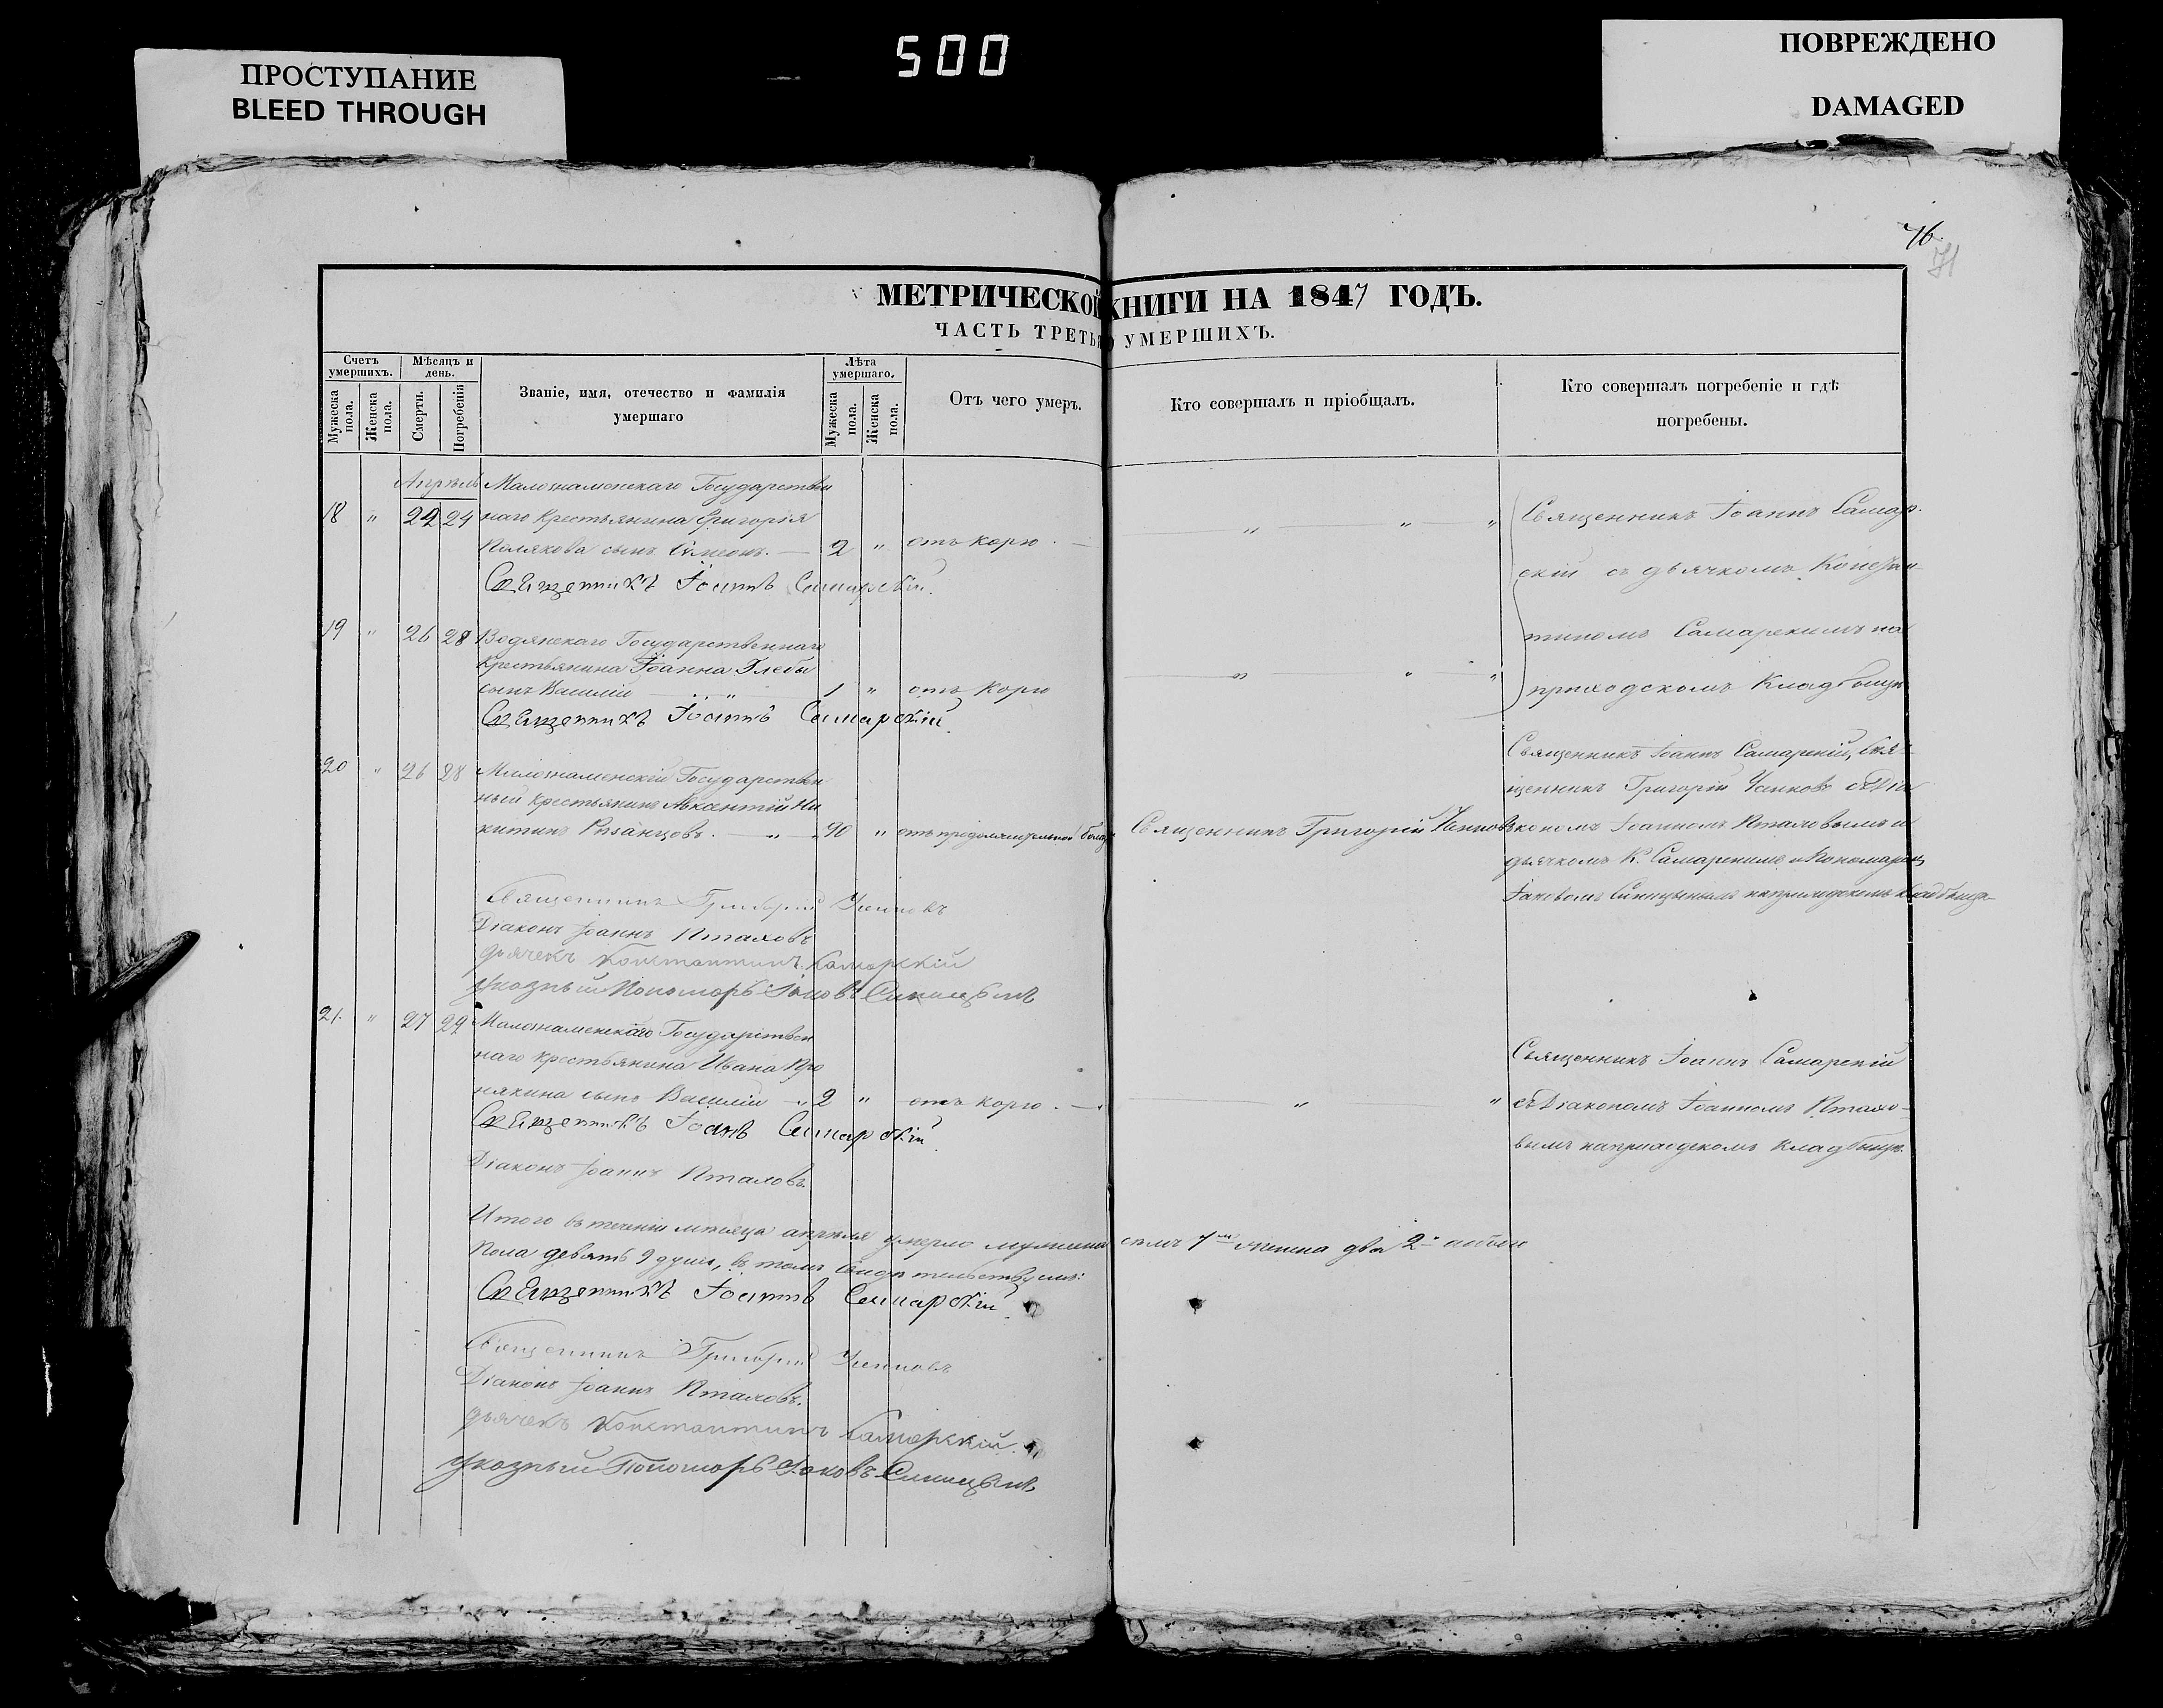 ПРОСТУПАНИЕ
BLEED THROUGH
500
ПОВРЕЖДЕНО
DAMAGED
76.
71
МЕТРИЧЕСКОЙ КНИГИ НА 1847 ГОДЪ.
ЧАСТЬ ТРЕТЬЯ О УМЕРШИХЪ.
Счетъ умершихъ.
Мужеска пола.
Женска пола.
Мѣсяцъ и день.
Смерти.
Погребенія
Званіе, имя, отечество и фамилія умершаго
Лѣта умершаго.
Мужеска пола.
Женска пола.
Отъ чего умеръ.
Кто совершалъ и пріобщалъ.
Кто совершалъ погребеніе и гдѣ погребены.
Апрѣль
18 " 22 24 Малознаменскаго Государствен
наго Крестьянина Григорія
Полякова сынъ Симеонъ. — 2 " отъ корю. — " — " — "
Священникъ Іоаннъ Самар-
скій съ дьячкомъ Констан-
тиномъ Самарскимъ на
приходскомъ Кладбищѣ
Священникъ Іоаннъ Самарскій.
19 " 26 28 Водянскаго Государственнаго
Крестьянина Іоанна Глебы
сынъ Василій — " 1 " отъ Корю — " — " — "
Священникъ Іоаннъ Самарскій.
20 " 26 28 Малознаменскій Государствен
ный крестьянинъ Авксентій Ни
китинъ Рязанцовъ. — " — 90 " отъ продолжительной Священникъ Григорій
Священникъ Іоаннъ Самарскій, Свя-
щенникъ Григорій съ Діа
кономъ Іоанномъ Пталовымъ и
дьячкомъ К. Самарскимъ и Пономаремъ
Іаковомъ Синицынымъ на приходскомъ кладбищѣ
Священникъ Григорій
Діаконъ Іоаннъ Пталовъ
дьячекъ Константинъ Самарскій
указный Пономарь Іаковъ Синицынъ
21. " 27 29 Малознаменскаго Государствен
наго крестьянина Ивана Про
някина сынъ Василій — " 2 " отъ корю. — " — "
Священникъ Іоаннъ Самарскій
съ Діакономъ Іоанномъ Птало-
вымъ на приходскомъ кладбищѣ.
Священникъ Іоаннъ Самарскій.
Діаконъ Іоаннъ Пталовъ.
Итого въ теченіи мѣсяца апреля умерло мужеска семь 7мъ женска два 2а обоего
пола девять 9 душъ, въ томъ свидѣтельствуемъ:
Священникъ Іоаннъ Самарскій.
Священникъ Григорій
Діаконъ Іоаннъ Пталовъ.
дьячекъ Константинъ Самарскій.
указный Пономарь Іаковъ Синицынъ